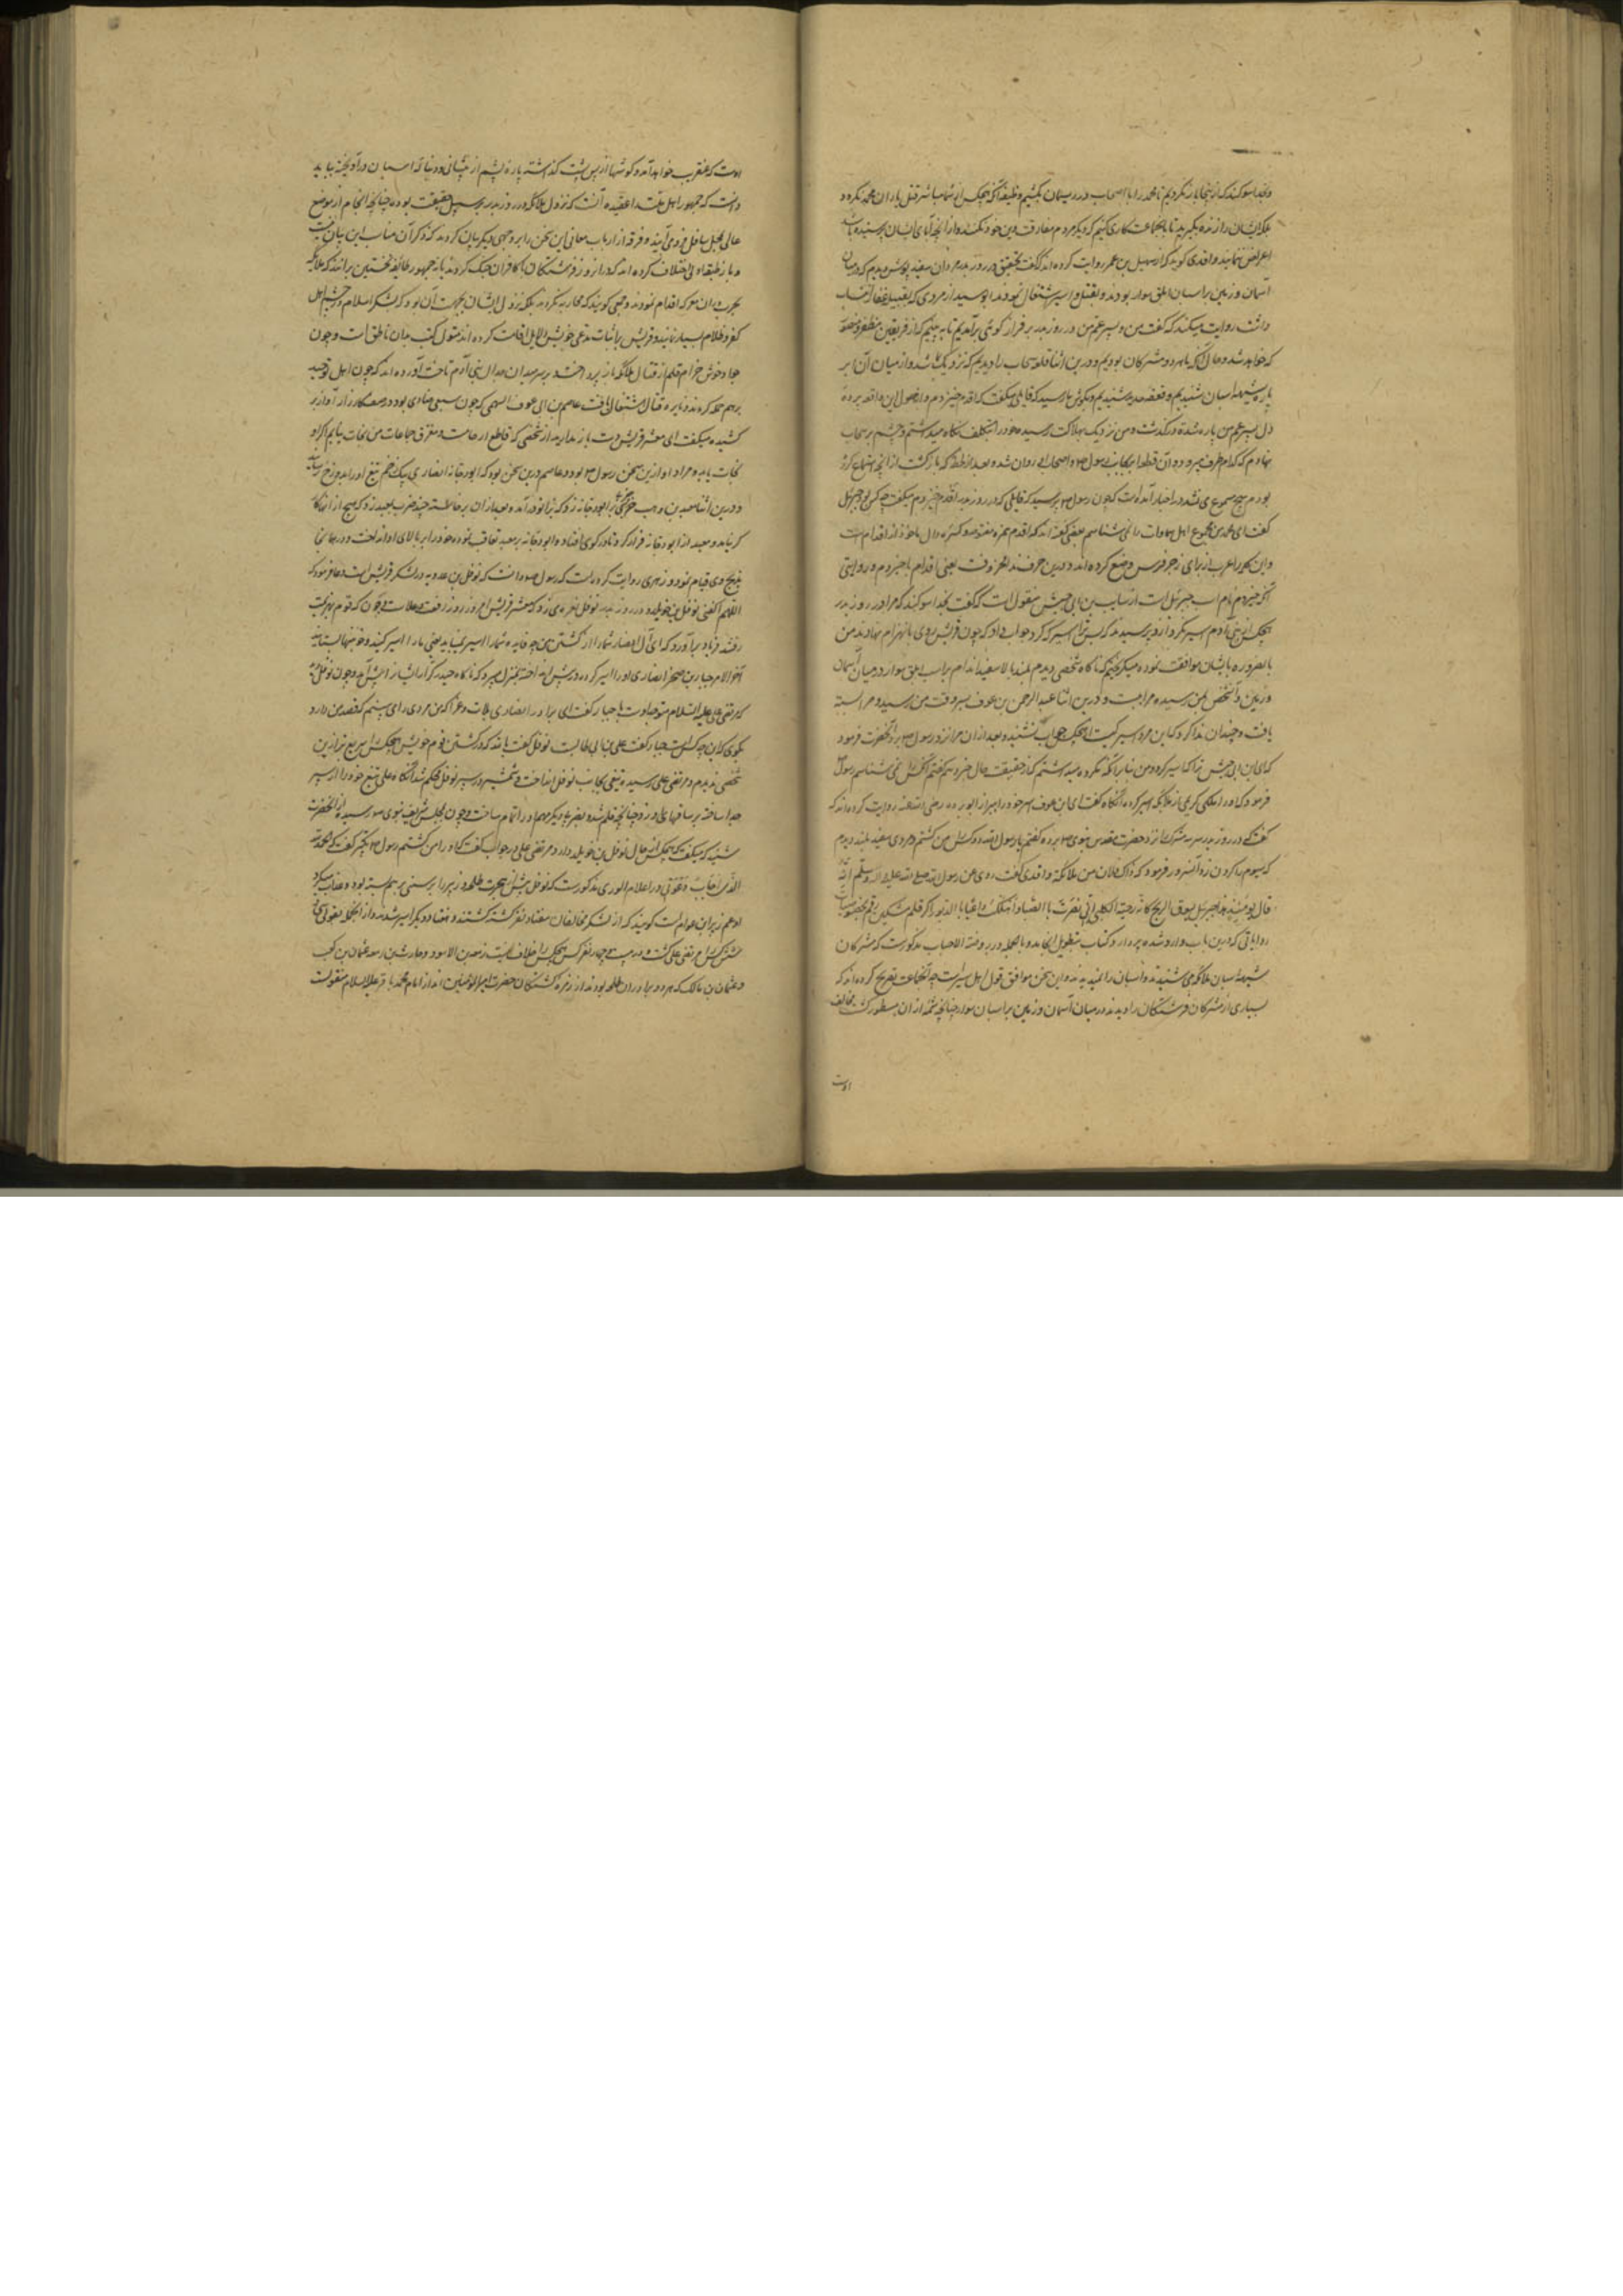 وبخدا سوکند که از اینجا باز نکردیم تا محمد را با اصحاب در ریسمان کشیم وظیفه آنکه هیچکس از شما مباشر قتل یاران محمد نکردد
بلکه ایشان را زنده بگیرید تا با جماعت کاری کنیم که دیگر مردم مفارقت دین خود نکنند و از آنچه آبای ایشان پرستیده باشند
اعراض ننمایند و واقدی کوید که از سهیل بن عمر روایت کرده اند که گفت بتحقیق در روز بدر مردان سفید پوش دیدم که در میان
آسمان و زمین بر اسبان ابلق سوار بودند و بقتل و اسیر اشتغال نمودند ابو سید از مردی که بقبیله غفار انتساب
داشت روایت میکند که گفت من و پسر عم من در روز بدر بر فراز کوئی برآمدیم تا به بینیم که از فریقین مظفر و منصور
که خواهد شد و حال آنکه ما هر دو مشرکان بودیم و درین اثنا قطعه سحاب را دیدیم که نزدیک ما شد و از میان آن ابر
شیهه اسبان شنیدیم و قعقعه حدید شنیدیم و بگوش ما رسید که قایلی میگفت که اقدم حیزدم و از حصول این واقعه پرده
دل پسر عم من پاره شد و درگذشت و من نزدیک بهلاکت رسیده خود را بتکلف نگاه میداشتم و چشم بر سحاب
نهادم که کدام طرف میرود آن قطعه بجانب رسول و اصحاب او روان شده بعد از لحظه که بازگشت از آنچه استماع کرده
بودم هیچ مسموع نمی شد در اخبار آمده است که چون رسول پرسید که قایلی که در روز بدر اقدم حیزدم میگفت چه کس بود جبرئیل
گفت ای محمد من مجموع اهل سماوات را نمی شناسم بعضی گفته اند که اقدم بهمزه مفتوحه و کسره دال ماخوذ از اقدام است
و این کلمه را عرب از برای زجر فرس وضع کرده اند و درین حرف ندا محذوفست یعنی اقدام یا حیزدم و در روایتی
آنکه حیزدم نام اسب جبرئیل است از سایب بن ابی حبیش منقول است که گفت بخدا سوکند که مرا در روز بدر
هیچکس از بنی آدم اسیر نکرد از و پرسیدند که پس ترا اسیر که کرد جواب داد که چون قریش روی بانهزام نهادند من
بالضروره با ایشان موافقت نموده میگریختم که ناگاه شخصی دیدم بلند بالا سفید اندام بر اسب ابلق سوار در میان آسمان
و زمین و آن شخص بمن رسیده مرا ببست و درین اثنا عبد الرحمن بن عوف بسر وقت من رسید و مرا بسته
یافت و چندان ندا کرد که این مرد اسیر کیست از هیچکس جواب نشنید بعد از آن مرا نزد رسول برد آنحضرت فرمود
که ای ابن ابی حبیش ترا که اسیر کرد و من بنا بر آنکه مکروه میداشتم که از حقیقت حال خبر دهم گفتم آنکس را نمی شناسم رسول
فرمود که او را ملکی کریم از ملایکه اسیر کرده آنگاه گفت ای ابن عوف اسیر خود را ببر از ابو برده رضی الله عنه روایت کرده اند که
گفت در روز بدر سه سر مشرکان نزد حضرت مقدس نبوی برده گفتم یا رسول الله دو کس را من کشتم و مردی سفید بلند دیدم
که سیوم را گردن زد آنسرور فرمود که ذاک فلان من الملائکة واقدی گفت روی عن رسول الله صلی الله علیه و آله و سلم انه
قال یومئذ هذا جبرئیل یسوق الریح کانه دحیة الکلبی انی نصرت بالصبا و اهلکت عاد بالدبور اگر قلم مشکین رقم
روایاتی که درین باب وارد شده پردازد کتاب بتطویل انجامد و بالجمله در روضة الاحباب مذکورست که مشرکان
شیهه اسبان ملائکه می شنیدند و اسبان را نمیدیدند و این سخن موافق قول اهل سیر است چه آنجماعت تصریح کرده اند که
بسیاری از مشرکان فرشتگان را دیدند در میان آسمان و زمین بر اسبان سوار چنانچه شمه از آن مسطور گشت مخالف
اوست
اوست که عنقریب خواهد آمد و گوشها از پس پشت گذاشته پاره پشم از پیشانی و دنباله اسبان درآویخته بباید
دانست که جمهور اهل ملت را عقیده آنست که نزول ملائکه در روز بدر بر سبیل حقیقت بوده چنانچه انجام از موضع
عالی بمحل سافل فرود می آیند و فرقه از ارباب معانی این سخن را بر وجهی دیگر بیان کردند که ذکر آن مناسب این بیان نیست
و باز طبقه اولی اختلاف کرده اند که در آن روز فرشتگان با کافران جنگ کردند یا نه جمهور طائفه نخستین برانند که ملایکه
بحرب در آن معرکه اقدام نمودند و جمعی کویند که محاربه نکردند بلکه نزول ایشان بجهت آن بود که لشکر اسلام در چشم اهل
کفر و ظلام بسیار نمایند و فریقین بر اثبات مدعی خویش دلایل اقامت کرده اند متون کتب بدان ناطق است و چون
جواد خوش خرام قلم از قتال ملائکه باز پرداخته بر سر میدان جدال بنی آدم تاخت آورده اند که چون اهل توحید
برهم حمله کردند و نایره قتال اشتعال یافت عاصم بن ابی عوف السهمی که چون سبعی منادی بود در معسکر راز آواز بر
کشیده میگفت ای معشر قریش دست باز ندارید از شخصی که قاطع ارحامست و مفرق جماعات من نجات نیابم اگر او
نجات یابد و مراد او ازین سخن رسول بود و عاصم درین سخن بود که ابو دجانه انصاری بیک زخم تیغ او را بدوزخ رسانید
و درین اثنا معبد بن وهب حربه بر ابو دجانه زد که بزانو درآمد و بعد از آن برخاسته چند ضرب بمعبد زد که هیچ از آن کارگر
نیامد و معبد از ابو دجانه فرار کرد تا در گوی افتاد و ابو دجانه بر معبد تعاقب نموده خود را بر بالای او انداخت و در همانجا
بذبح وی قیام نمود و زهری روایت کرده است که رسول دانست که نوفل بن خویلد در لشکر قریش است دعا فرمود که
اللهم اکفنی نوفل بن خویلد و در روز بدر نوفل نعره می زد که معشر قریش امروز روز رفعت و علاست و چون که قوم بهزیمت
رفتند فریاد برآورد که ای آل انصار شما را از کشتن من چه فایده شما را اسیر می باید یعنی ما را اسیر کنید و خونبها بستانید
آخر الامر جبار بن صخر انصاری او را اسیر کرده در پیش انداخته بمنزل میبرد که ناگاه حیدر کرار ایشان را پیش آمد و چون نوفل دید
که مرتضی علی علیه السلام متوجه اوست با جبار گفت ای برادر انصاری بلات و عزا که من مردی را می بینم که قصد من دارد
بگوی که این چه کس است جبار گفت علی بن ابی طالب نوفل گفت بالله که در کشتن قوم خویش هیچکس را سریع تر از این
شخص ندیدم و مرتضی علی رسیده تیغی بجانب نوفل انداخت و شمشیر در سپر نوفل محکم شد آنگاه علی تیغ خود را از سپر
جدا ساخته بر ساقهای او زد چنانچه قلم شد و بضربه دیگر مهم او را تمام ساخت و چون بمجلس شریف نبوی رسید از آنحضرت
شنید که میگفت که هیچکس از حال نوفل بن خویلد دارد مرتضی علی در جواب گفت که او را من کشتم رسول تکبیر گفت که الحمد لله
الذی اجاب دعوتی در اعلام الوری مذکورست که نوفل پیش از هجرت طلحه و زبیر را بر سنی برهم بسته بود و عذاب میکرد
او عم زبیر ابن عوام است کویند که از لشکر مخالفان هفتاد نفر کشته گشتند و هفتاد دیگر اسیر شدند و از آنجمله بقولی سی و
شش کس را مرتضی علی کشت و در بیست و چهار نفر کس هیچکس را خلاف نیست زمعه بن الاسود و حارث بن زمعه عثمان بن کعب
و عثمان بن مالک که هر دو برادران طلحه بودند از زمره کشتگان حضرت امیر المؤمنین اند از امام محمد باقر علیه السلام منقولست